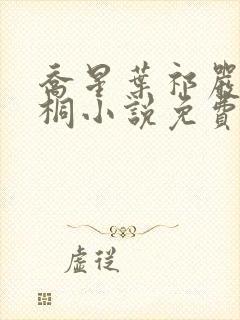 喬星葉祁嚴
桐小說免費
虛從